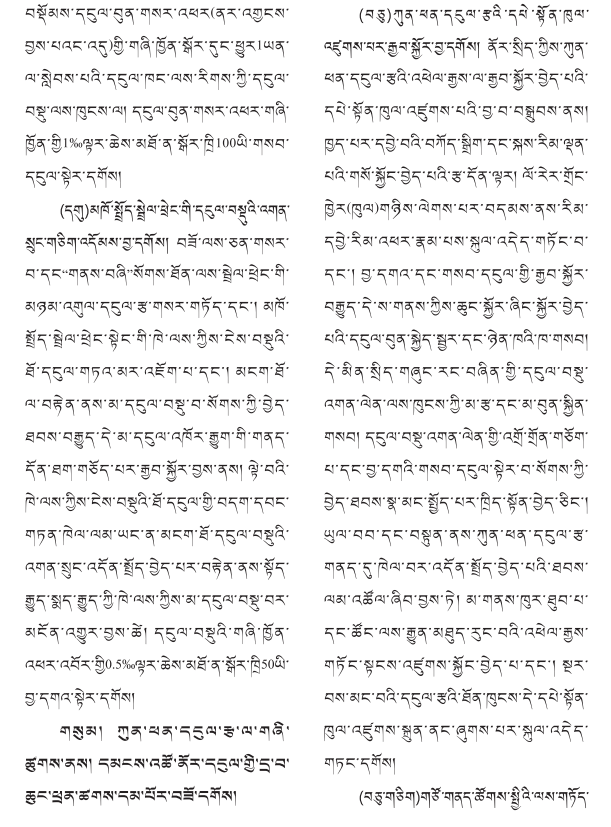 བསྡོམས་དངུལ་བུན་གསར་འཕར(ནར་འགྱངས་
བྱས་པའང་འདུ)གྱི་གཞི་ཁྱོན་སྒོར་དུང་ཕྱུར1ཡན་
ལ་སླེབས་པའི་དངུལ་ཁང་ལས་རིགས་ཀྱི་དངུལ་
བསྡུ་ལས་ཁུངས་ལ། དངུལ་བུན་གསར་འཕར་གཞི་
ཁྱོན་གྱི1‰ལྟར་ཆེས་མཐོ་ན་སྒོར་ཁྲི100ཡི་གསབ་
དངུལ་སྟེར་དགོས།
(དགུ)མཁོ་སྤྲོད་སྦྲེལ་ཕྲེང་གི་དངུལ་བསྡུའི་འགན་
སྲུང་གཅིག་འདོམས་བྱ་དགོས། བཟོ་ལས་ཅན་གསར་
བ་དང“གནས་བཞི”སོགས་ཐོན་ལས་སྦྲེལ་ཕྲེང་གི་
མཉམ་འགུལ་དངུལ་རྩ་གསར་གཏོད་དང༌། མཁོ་
སྤྲོད་སྦྲེལ་ཕྲེང་སྟེང་གི་ཁེ་ལས་ཀྱིས་ངེས་བསྡུའི་
ཐོ་དངུལ་གཏའ་མར་འཇོག་པ་དང༌། མངག་ཐོ་
ལ་བརྟེན་ནས་མ་དངུལ་བསྡུ་བ་སོགས་ཀྱི་བྱེད་
ཐབས་བརྒྱུད་དེ་མ་དངུལ་འཁོར་རྒྱུག་གི་གནད་
དོན་ཐག་གཅོད་པར་རྒྱབ་སྐྱོར་བྱས་ནས། ལྟེ་བའི་
ཁེ་ལས་ཀྱིས་ངེས་བསྡུའི་ཐོ་དངུལ་གྱི་བདག་དབང་
གཏན་ཁེལ་ལམ་ཡང་ན་མངག་ཐོ་དངུལ་བསྡུའི་
འགན་སྲུང་འདོན་སྤྲོད་བྱེད་པར་བརྟེན་ནས་སྟོད་
རྒྱུད་སྨད་རྒྱུད་ཀྱི་ཁེ་ལས་ཀྱིས་མ་དངུལ་བསྡུ་བར་
མངོན་འགྱུར་བྱས་ཚེ། དངུལ་བསྡུའི་གཞི་ཁྱོན་
འཕར་འབོར་གྱི0.5‰ལྟར་ཆེས་མཐོ་ན་སྒོར་ཁྲི50ཡི་
བྱ་དགའ་སྟེར་དགོས།
གསུམ། ཀུན་ཕན་དངུལ་རྩ་ལ་གཞི་
ཚུགས་ནས། དམངས་འཚོ་ནོར་དངུལ་གྱི་དྲ་བ་
ཆུང་ཕྲན་ཚགས་དམ་པོར་བཟོ་དགོས།
(བཅུ)ཀུན་ཕན་དངུལ་རྩའི་དཔེ་སྟོན་ཁུལ་
འཛུགས་པར་རྒྱབ་སྐྱོར་བྱ་དགོས། ནོར་སྲིད་ཀྱིས་ཀུན་
ཕན་དངུལ་རྩའི་འཕེལ་རྒྱས་ལ་རྒྱབ་སྐྱོར་བྱེད་པའི་
དཔེ་སྟོན་ཁུལ་འཛུགས་པའི་བྱ་བ་བསྒྲུབས་ནས།
ཁྱད་པར་དབྱེ་བའི་བཀོད་སྒྲིག་དང་སྐས་རིམ་ལྡན་
པའི་གསོ་སྐྱོང་བྱེད་པའི་རྩ་དོན་ལྟར། ལོ་རེར་གྲོང་
ཁྱེར(ཁུལ)གཉིས་ལེགས་པར་བདམས་ནས་རིམ་
དབྱེ་རིམ་འཕར་རྣམ་པས་སྐུལ་འདེད་གཏོང་བ་
དང༌། བྱ་དགའ་དང་གསབ་དངུལ་གྱི་རྒྱབ་སྐྱོར་
བརྒྱུད་དེ་ས་གནས་ཀྱིས་ཆུང་སྐྱོར་ཞིང་སྐྱོར་བྱེད་
པའི་དངུལ་བུན་སྐྱེད་སྦྱར་དང་ཉེན་ཁའི་ཁ་གསབ།
དེ་མིན་སྲིད་གཞུང་རང་བཞིན་གྱི་དངུལ་བསྡུ་
འགན་ལེན་ལས་ཁུངས་ཀྱི་མ་རྩ་དང་མ་བུན་སྐྱིན་
གསབ། དངུལ་བསྡུ་འགན་ལེན་གྱི་འགྲོ་གྲོན་གཅོག་
པ་དང་བྱ་དགའི་གསབ་དངུལ་སྟེར་བ་སོགས་ཀྱི་
བྱེད་ཐབས་སྣ་མང་སྤྱོད་པར་ཁྲིད་སྟོན་བྱེད་ཅིང༌།
ཡུལ་བབ་དང་བསྟུན་ནས་ཀུན་ཕན་དངུལ་རྩ་
གནད་དུ་ཁེལ་བར་འདོན་སྤྲོད་བྱེད་པའི་ཐབས་
ལམ་འཚོལ་ཞིབ་བྱས་ཏེ། མ་གནས་ཁུར་ཐུབ་པ་
དང་ཚོང་ལས་རྒྱུན་མཐུད་རུང་བའི་འཕེལ་རྒྱས་
གཏོང་སྟངས་འཛུགས་སྐྱོང་བྱེད་པ་དང༌། སྔར་
བས་མང་བའི་དངུལ་རྩའི་ཐོན་ཁུངས་དེ་དཔེ་སྟོན་
ཁུལ་འཛུགས་སྐྲུན་ནང་ཞུགས་པར་སྐུལ་འདེད་
གཏང་དགོས།
(བཅུ་གཅིག)གཙོ་གནད་ཚོགས་སྤྱིའི་ལས་གཏོད་